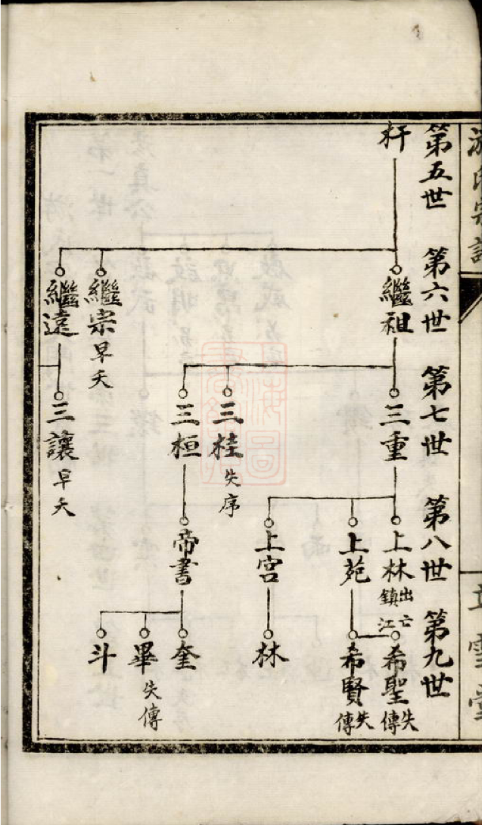 第五世
第六世
第七世
第八世
第九世
杆
繼祖
繼宗早夭
繼遠
三重
三桂失序
三桓
三讓早夭
上林出亡鎮江
上苑
上宮
帝書
希聖失傳
希賢失傳
林
奎
畢失傳
斗